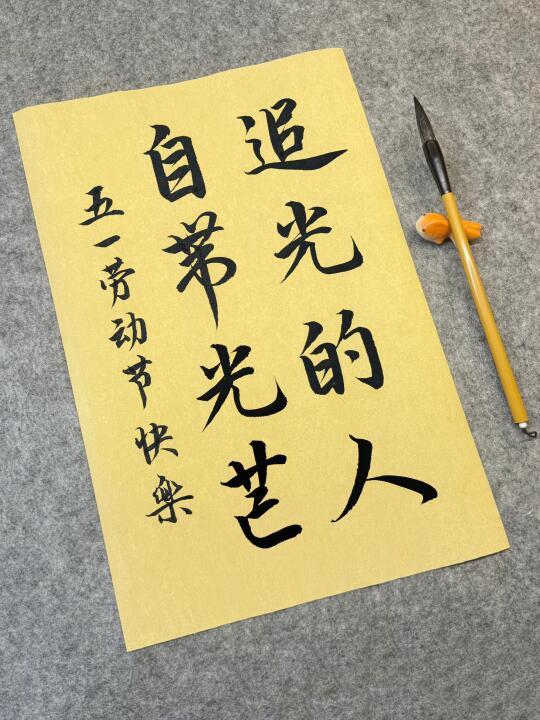 追光的人
自带光芒
五一劳动节快樂